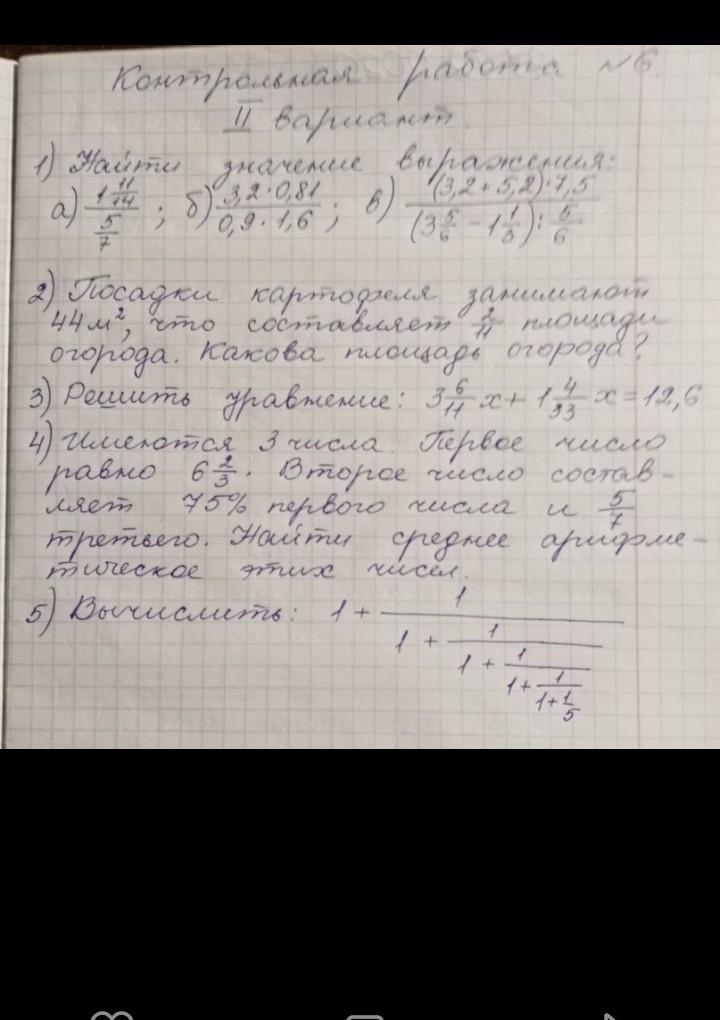 Контрольная работа №6.
II вариант.
1) Найти значение выражения:
а) \frac{1\frac{11}{14}}{\frac{5}{7}}; б) \frac{3,2·0,81}{0,9·1,6}; в) \frac{(3,2+5,2)·7,5}{(3\frac{5}{6}-1\frac{1}{3}):\frac{5}{6}}
2) Посадки картофеля занимают
44м², что составляет \frac{2}{11} площади
огорода. Какова площадь огорода?
3) Решить уравнение: 3\frac{6}{11}x+1\frac{4}{33}x=12,6
4) Имеются 3 числа. Первое число
равно 6\frac{2}{3}. Второе число состав-
ляет 75% первого числа и \frac{5}{7}
третьего. Найти среднее арифме-
тическое этих чисел.
5) Вычислить: 1+\frac{1}{1+\frac{1}{1+\frac{1}{1+\frac{1}{1+\frac{1}{5}}}}}